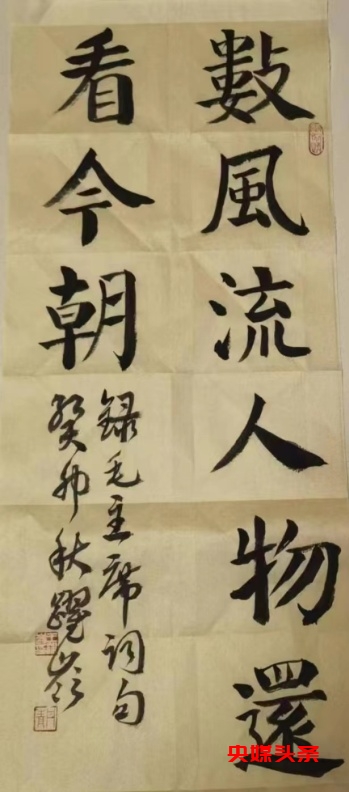 數風流人物還
看今朝
錄毛主席词句
癸卯秋躍嶺
央媒头条